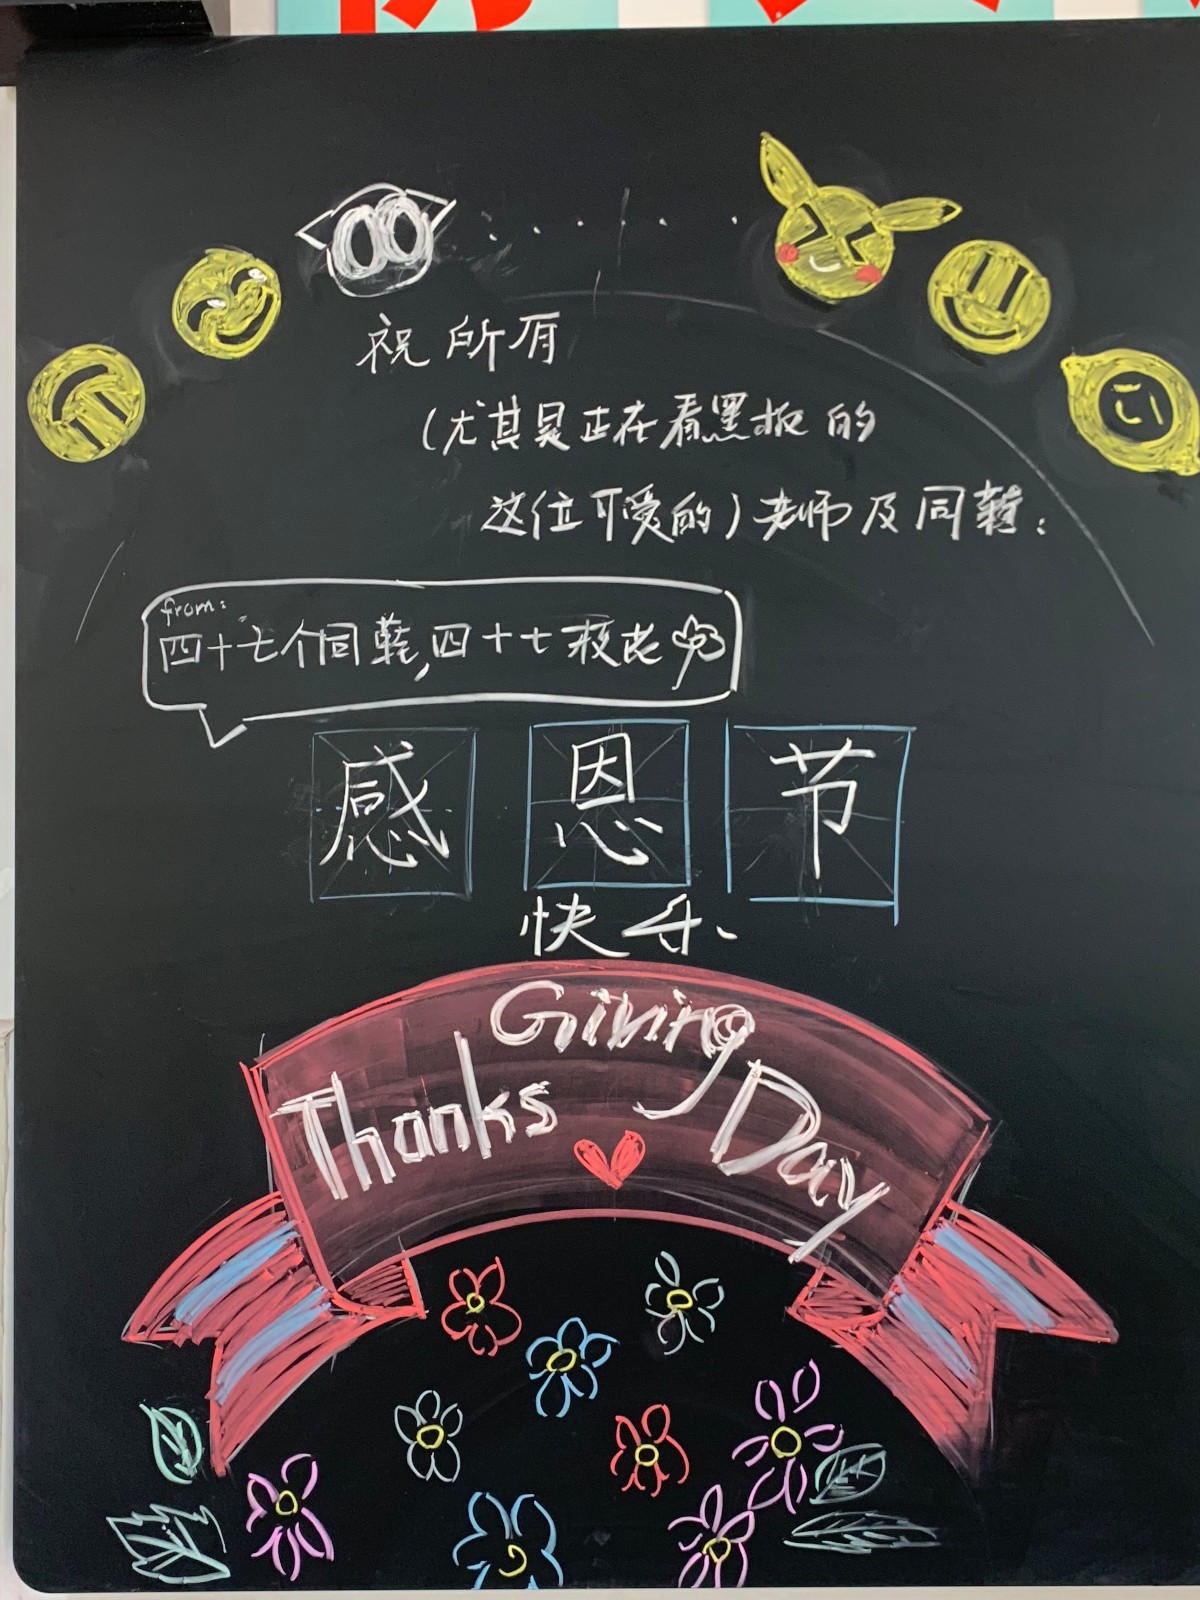 祝所有
（尤其是正在看黑板的
这位可爱的）老师及同鞋：
from：
四十七个同鞋，四十七枝花
感恩节
快乐
Thanks Giving Day